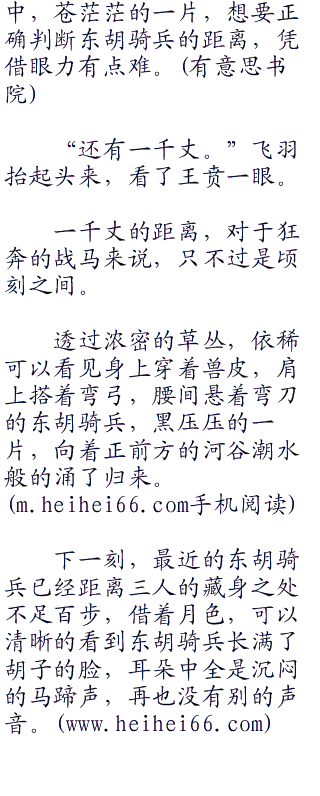 中，苍茫茫的一片，想要正
确判断东胡骑兵的距离，凭
借眼力有点难。(有意思书
院)
“还有一千丈。”飞羽
抬起头来，看了王贲一眼。
一千丈的距离，对于狂
奔的战马来说，只不过是顷
刻之间。
透过浓密的草丛，依稀
可以看见身上穿着兽皮，肩
上搭着弯弓，腰间悬着弯刀
的东胡骑兵，黑压压的一
片，向着正前方的河谷潮水
般的涌了归来。
(m.heihei66.com手机阅读)
下一刻，最近的东胡骑
兵已经距离三人的藏身之处
不足百步，借着月色，可以
清晰的看到东胡骑兵长满了
胡子的脸，耳朵中全是沉闷
的马蹄声，再也没有别的声
音。(www.heihei66.com)